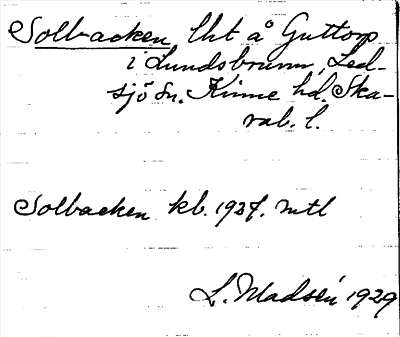 Solbacken lht å Guttorp
i Lundsbrunn, Led-
sjö sn. Kinne hd. Ska-
rab. l.
Solbacken kb. 1927. mtl
L. Madsén 1929